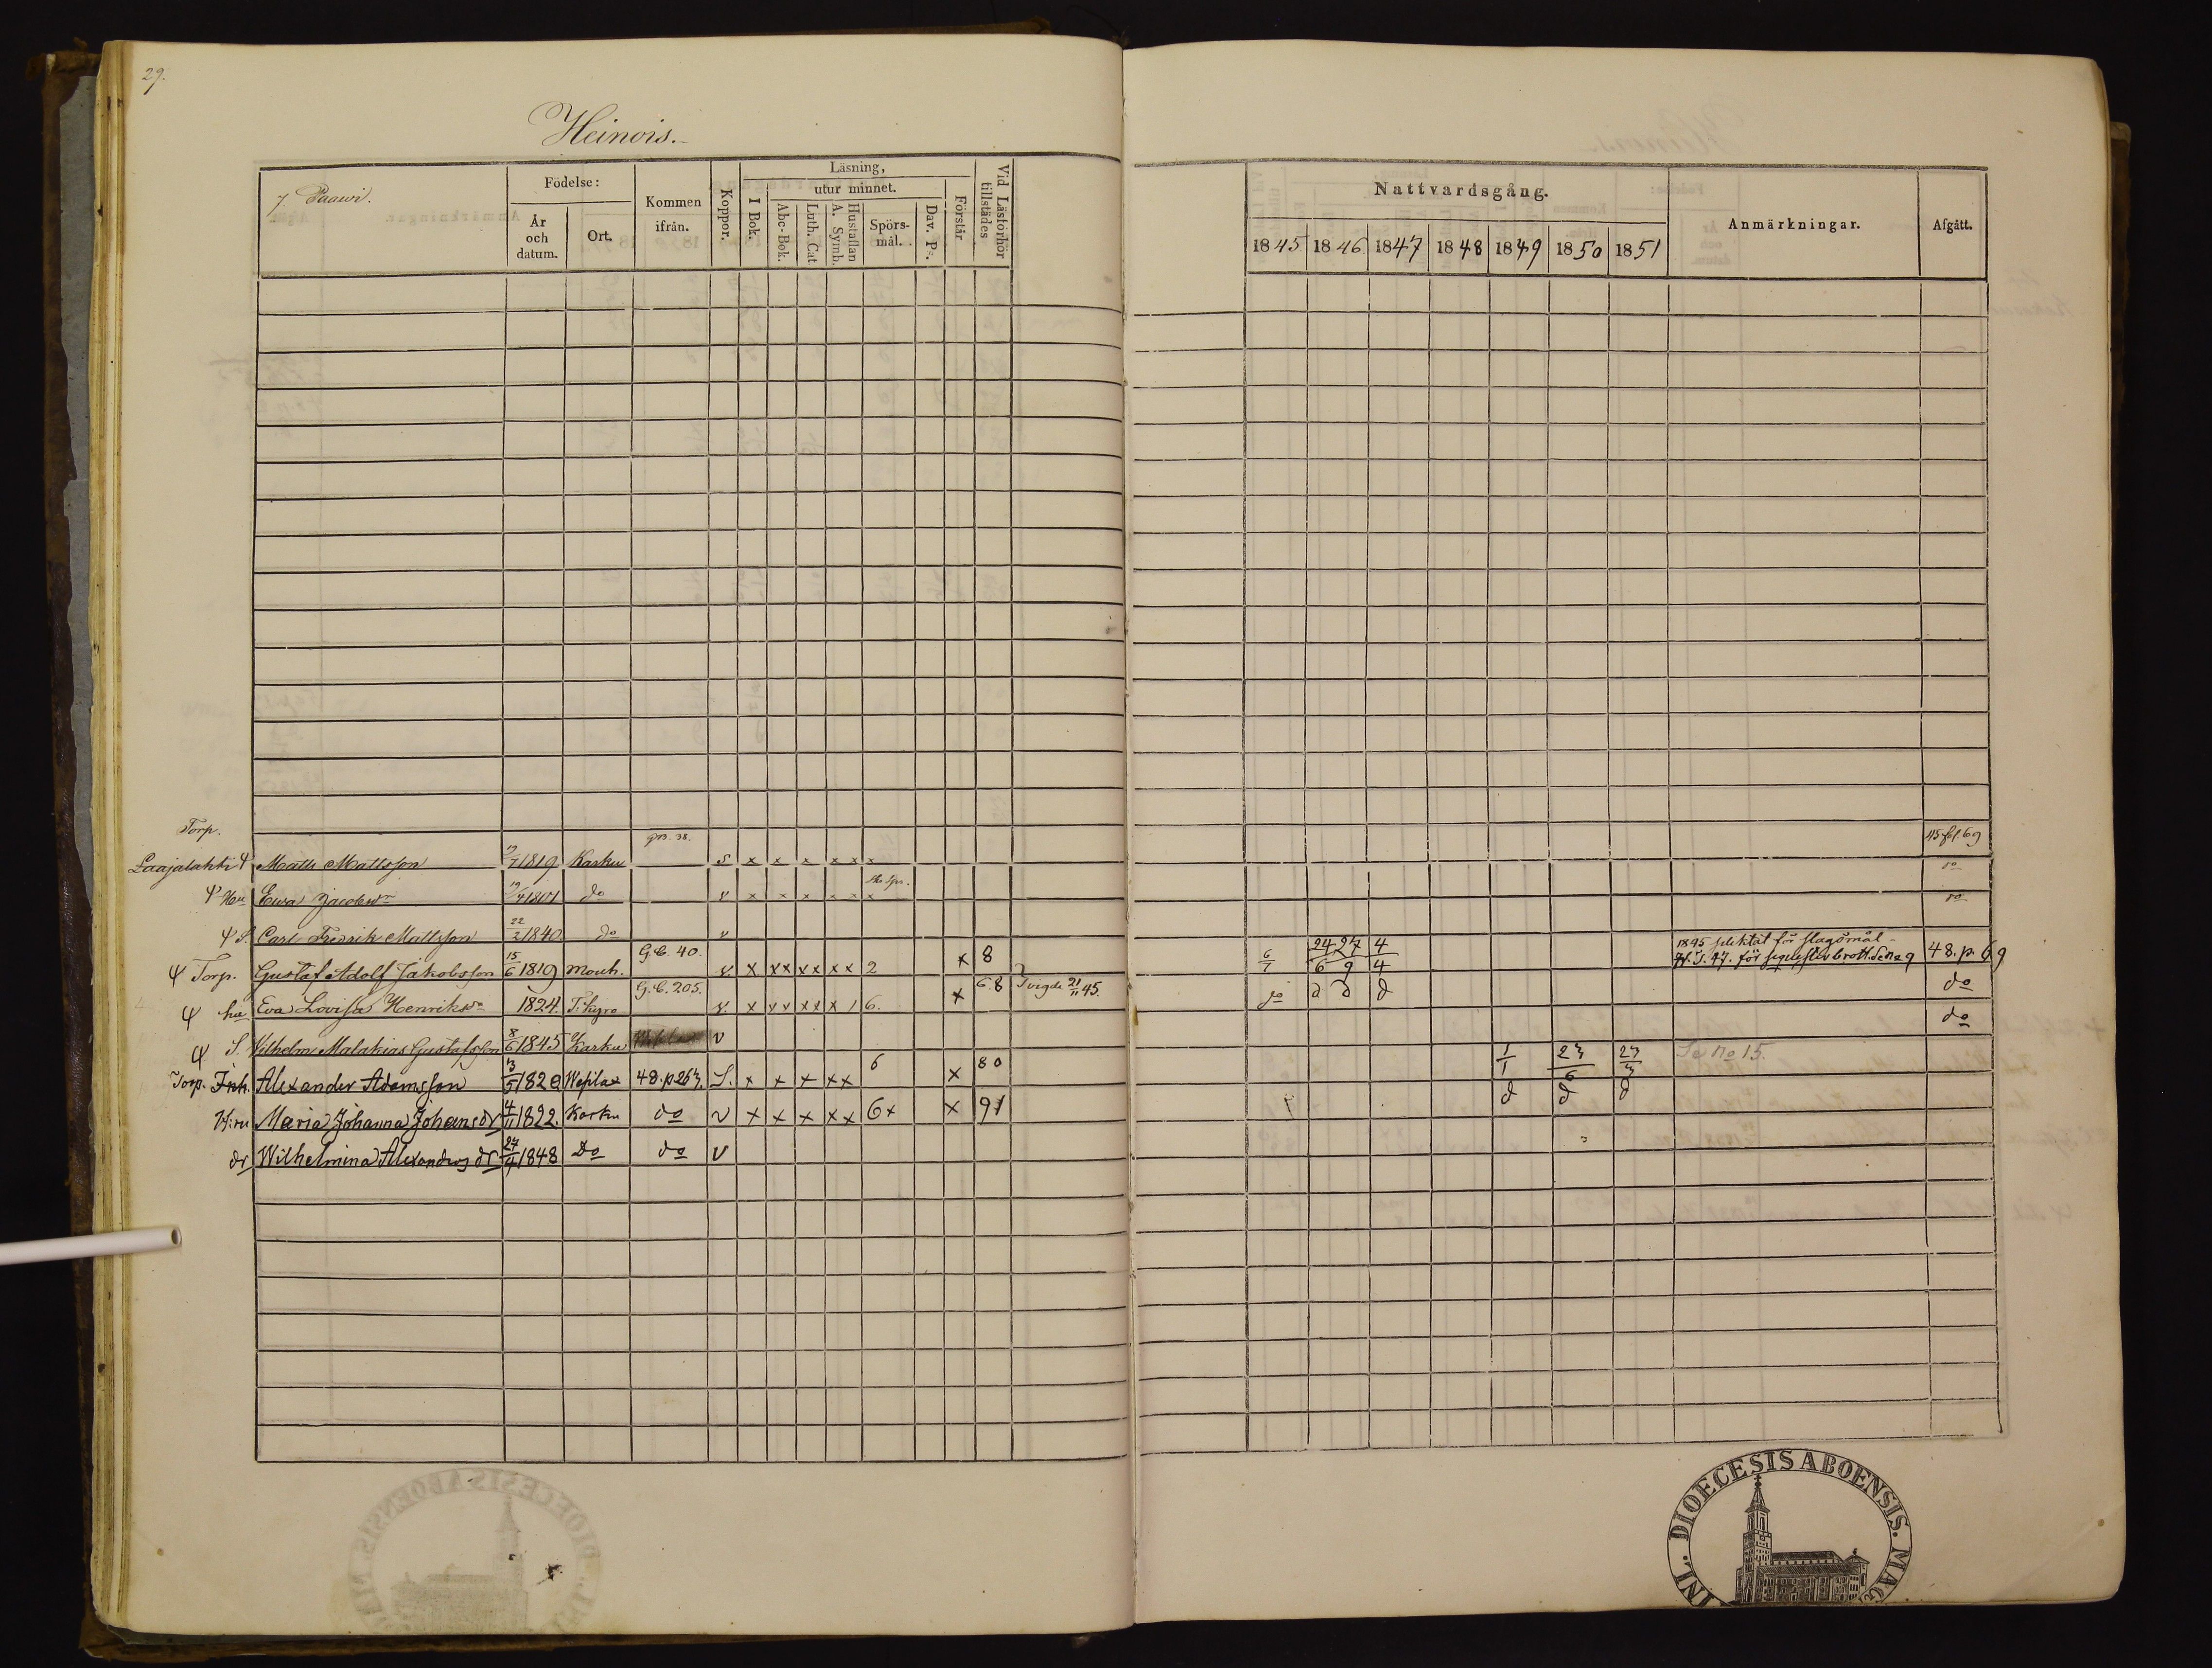 29.
Heinois.
7 Paawi.
Födelse:
År och datum.
Ort.
Kommen ifrån.
Koppor.
Läsning,
I Bok.
utur minnet.
Abc-Bok.
Luth. Cat
Hustaflan A. Symb.
Spörsmål.
Dav. Ps.
Förstår
Vid Läsförhör tillstädes
Nattvardsgång.
1845 1846 1847 1848 1849 1850 1851
Anmärkningar.
Afgått.
Torp. 38. 45 fol 69
Laajalahti Ψ Matts Mattsson 1819 Karku s x x x x x x do
Ψ Hu Ewa Jacobsdr 19 do v x x x x x x do
Ψ S. Carl Fredrik Mattsson 22/2 1840 do v
Ψ Torp. Gustaf Adolf Jakobsson 15/6 1819 Mouh. G.B. 40. v x xx xx x x 2 x 8 6/7 24/6 27/9 4/4 1845 pliktat för slagsmål 48. p. 69
Ψ hu Eva Lovisa Henriksdr 1824. T. Kyro G.B. 205. v. x xx xx x 1 6. x 6.8 vigde 21/11 45. do d d d do
Ψ S. Vilhelm Malakias Gustafsson 8/6 1845 Karku v do
Torp. Inh. Alexander Adamsson 3/5 1820 Wesilax 48. p 257. S. x x x xx 6 x 80 1/1 27/6 27/3 Se No 15.
H:ru Maria Johanna Johansdr 4/11 1822. Karku do v x x x xx 6x x 91 d d d
dr Wilhelmina Alexandersdr 27/9 1848 Do do v
DIOECESIS ABOENSIS. MAG
INI.